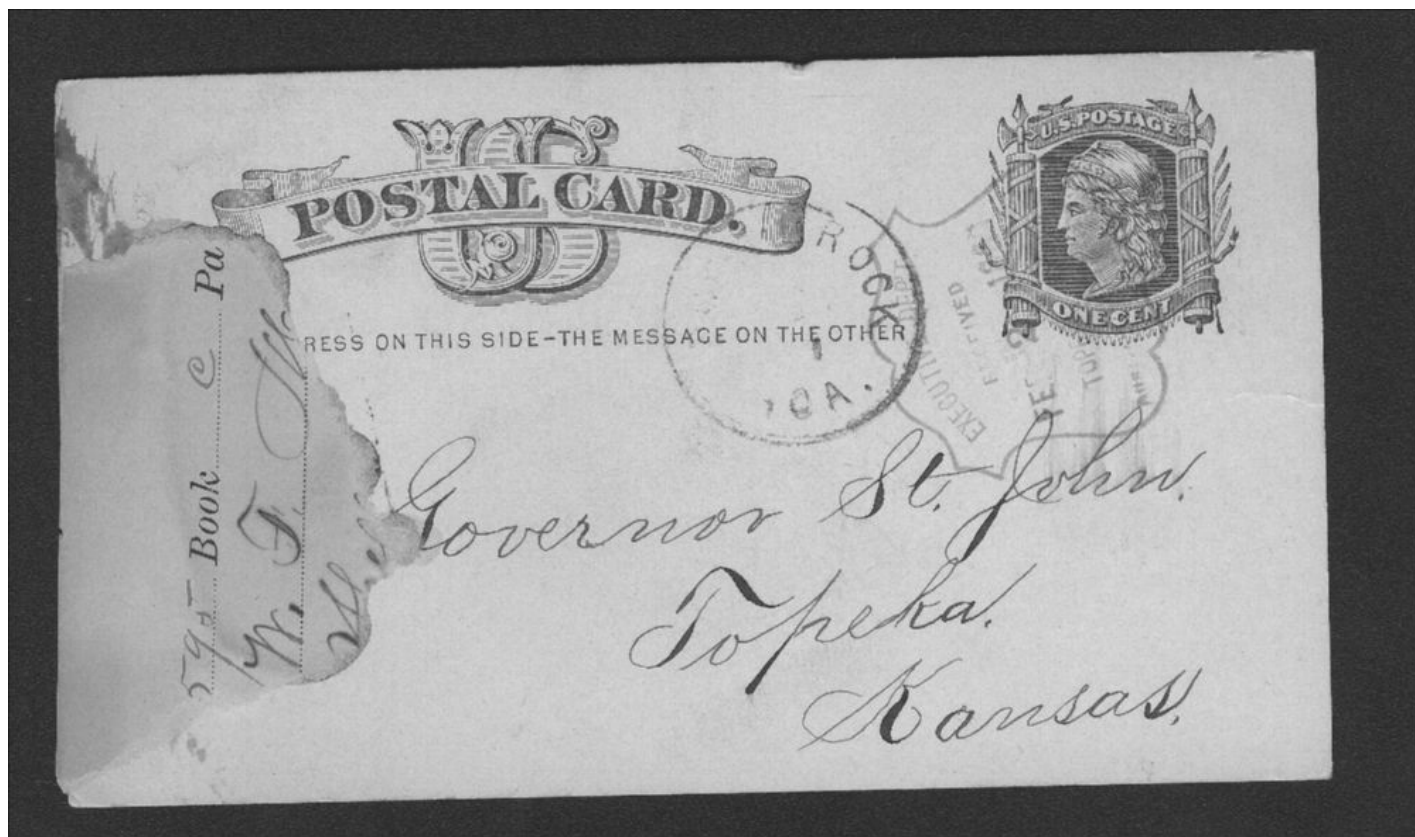 US
POSTAL CARD.
U.S. POSTAGE
ONE CENT
RESS ON THIS SIDE-THE MESSAGE ON THE OTHER
ROCK
EXECUTIVE DEPT.
RECEIVED
TOP
Governor St. John.
Topeka.
Kansas.
Book C Pa
W. F.